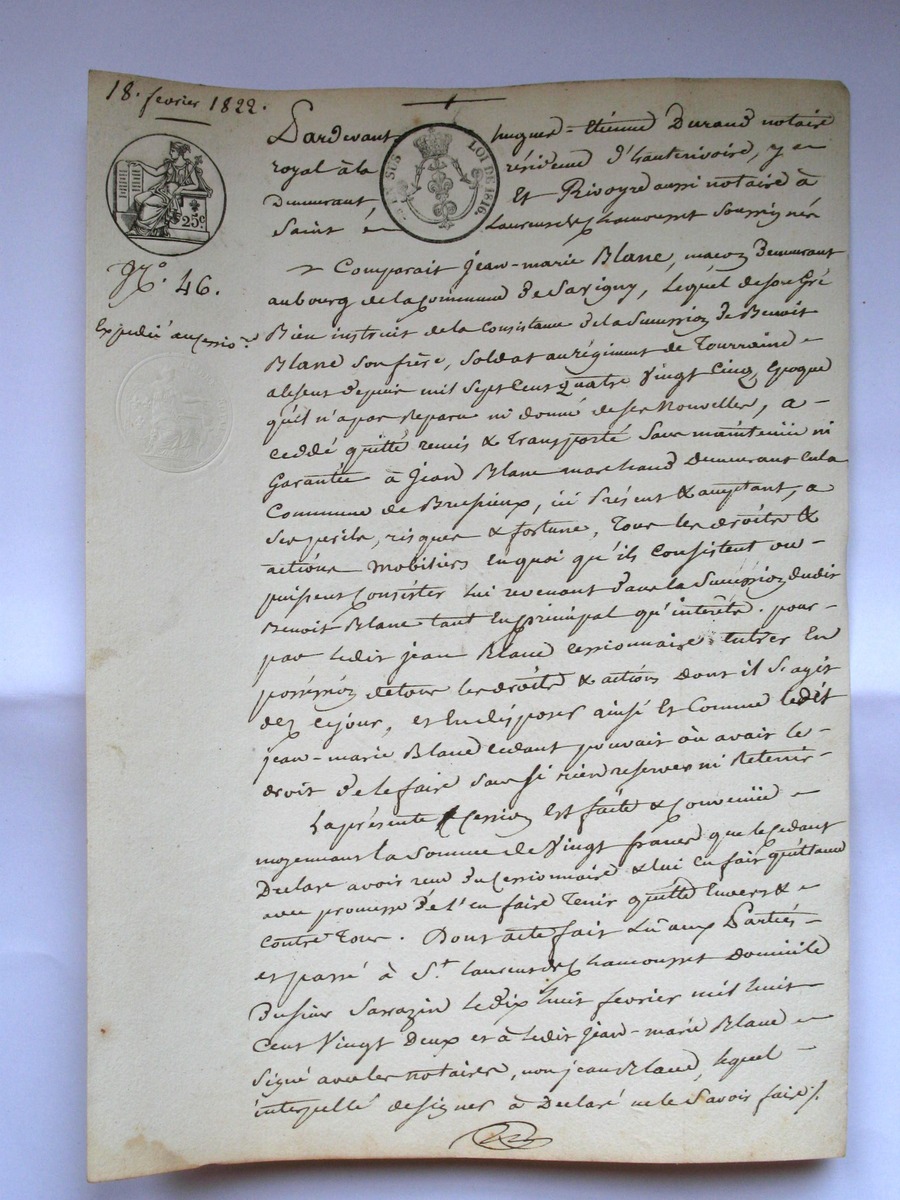 18. fevrier 1822.
Pardevant hugues-etienne Durand notaire
royal à la résidence d'hauterivoire, y en
Demeurant Et Rivoyre aussi notaire à
Saint Laurent de Chamousset Soussignés
TIMB. EN SUS LOI DE 1816
25c
N.o 46.
Expedié au Cessio.re
Comparait Jean-marie Blanc, maçon Demeurant
au bourg de la Commune De Savigny, Lequel de son Gré
Bien instruit de la Consistance De la Succession De Benoit
Blanc Son frère, Soldat au régiment de Tourraine
absent Depuis mil Sept Cent quatre Vingt Cinq, Epoque
qu'il n'a pas Reparu ni donné de ses Nouvelles, a
ceddé quitté remis & transporté Sans maintenüe ni
Garantie à Jean Blanc marchand Demeurant en la
Commune de Brussieux, ici Présent & acceptant, a
Ses perils, risques & fortune, Tous les droits &
actions Mobiliers en quoi qu'ils Consistent ou
puissent Consister Lui revenant Dans la Succession dudit
Benoit Blanc tant En principal qu'interêts. pour
par Ledit jean Blanc Cessionnaire Entrer En
possession de tous les droits & actions dont il S'agit
dez ce jour, et En disposer ainsi Et Comme Ledit
jean-marie Blanc cedant pouvait où avait le
droit De le faire Sans Si rien reserver ni Retenir
La présente Cession Est faite & Convenüe
moyennant la Somme de Vingt francs que le Cedant
Declare avoir reçu Du Cessionnaire & lui En fait quittance
avec promesse De l'en faire Tenir quitte Envers &
contre Tous. Dont acte fait Lû aux Parties
et passé à St. Laurent de Chamousset Domicile
Du Sieur Sarrazin Le dix huit fevrier mil huit
Cent Vingt Deux et à Ledit Jean-marie Blanc
Signé avec les notaires, non jean Blanc, Lequel
interpellé de Signer à Declaré ne le Savoir faire ./.